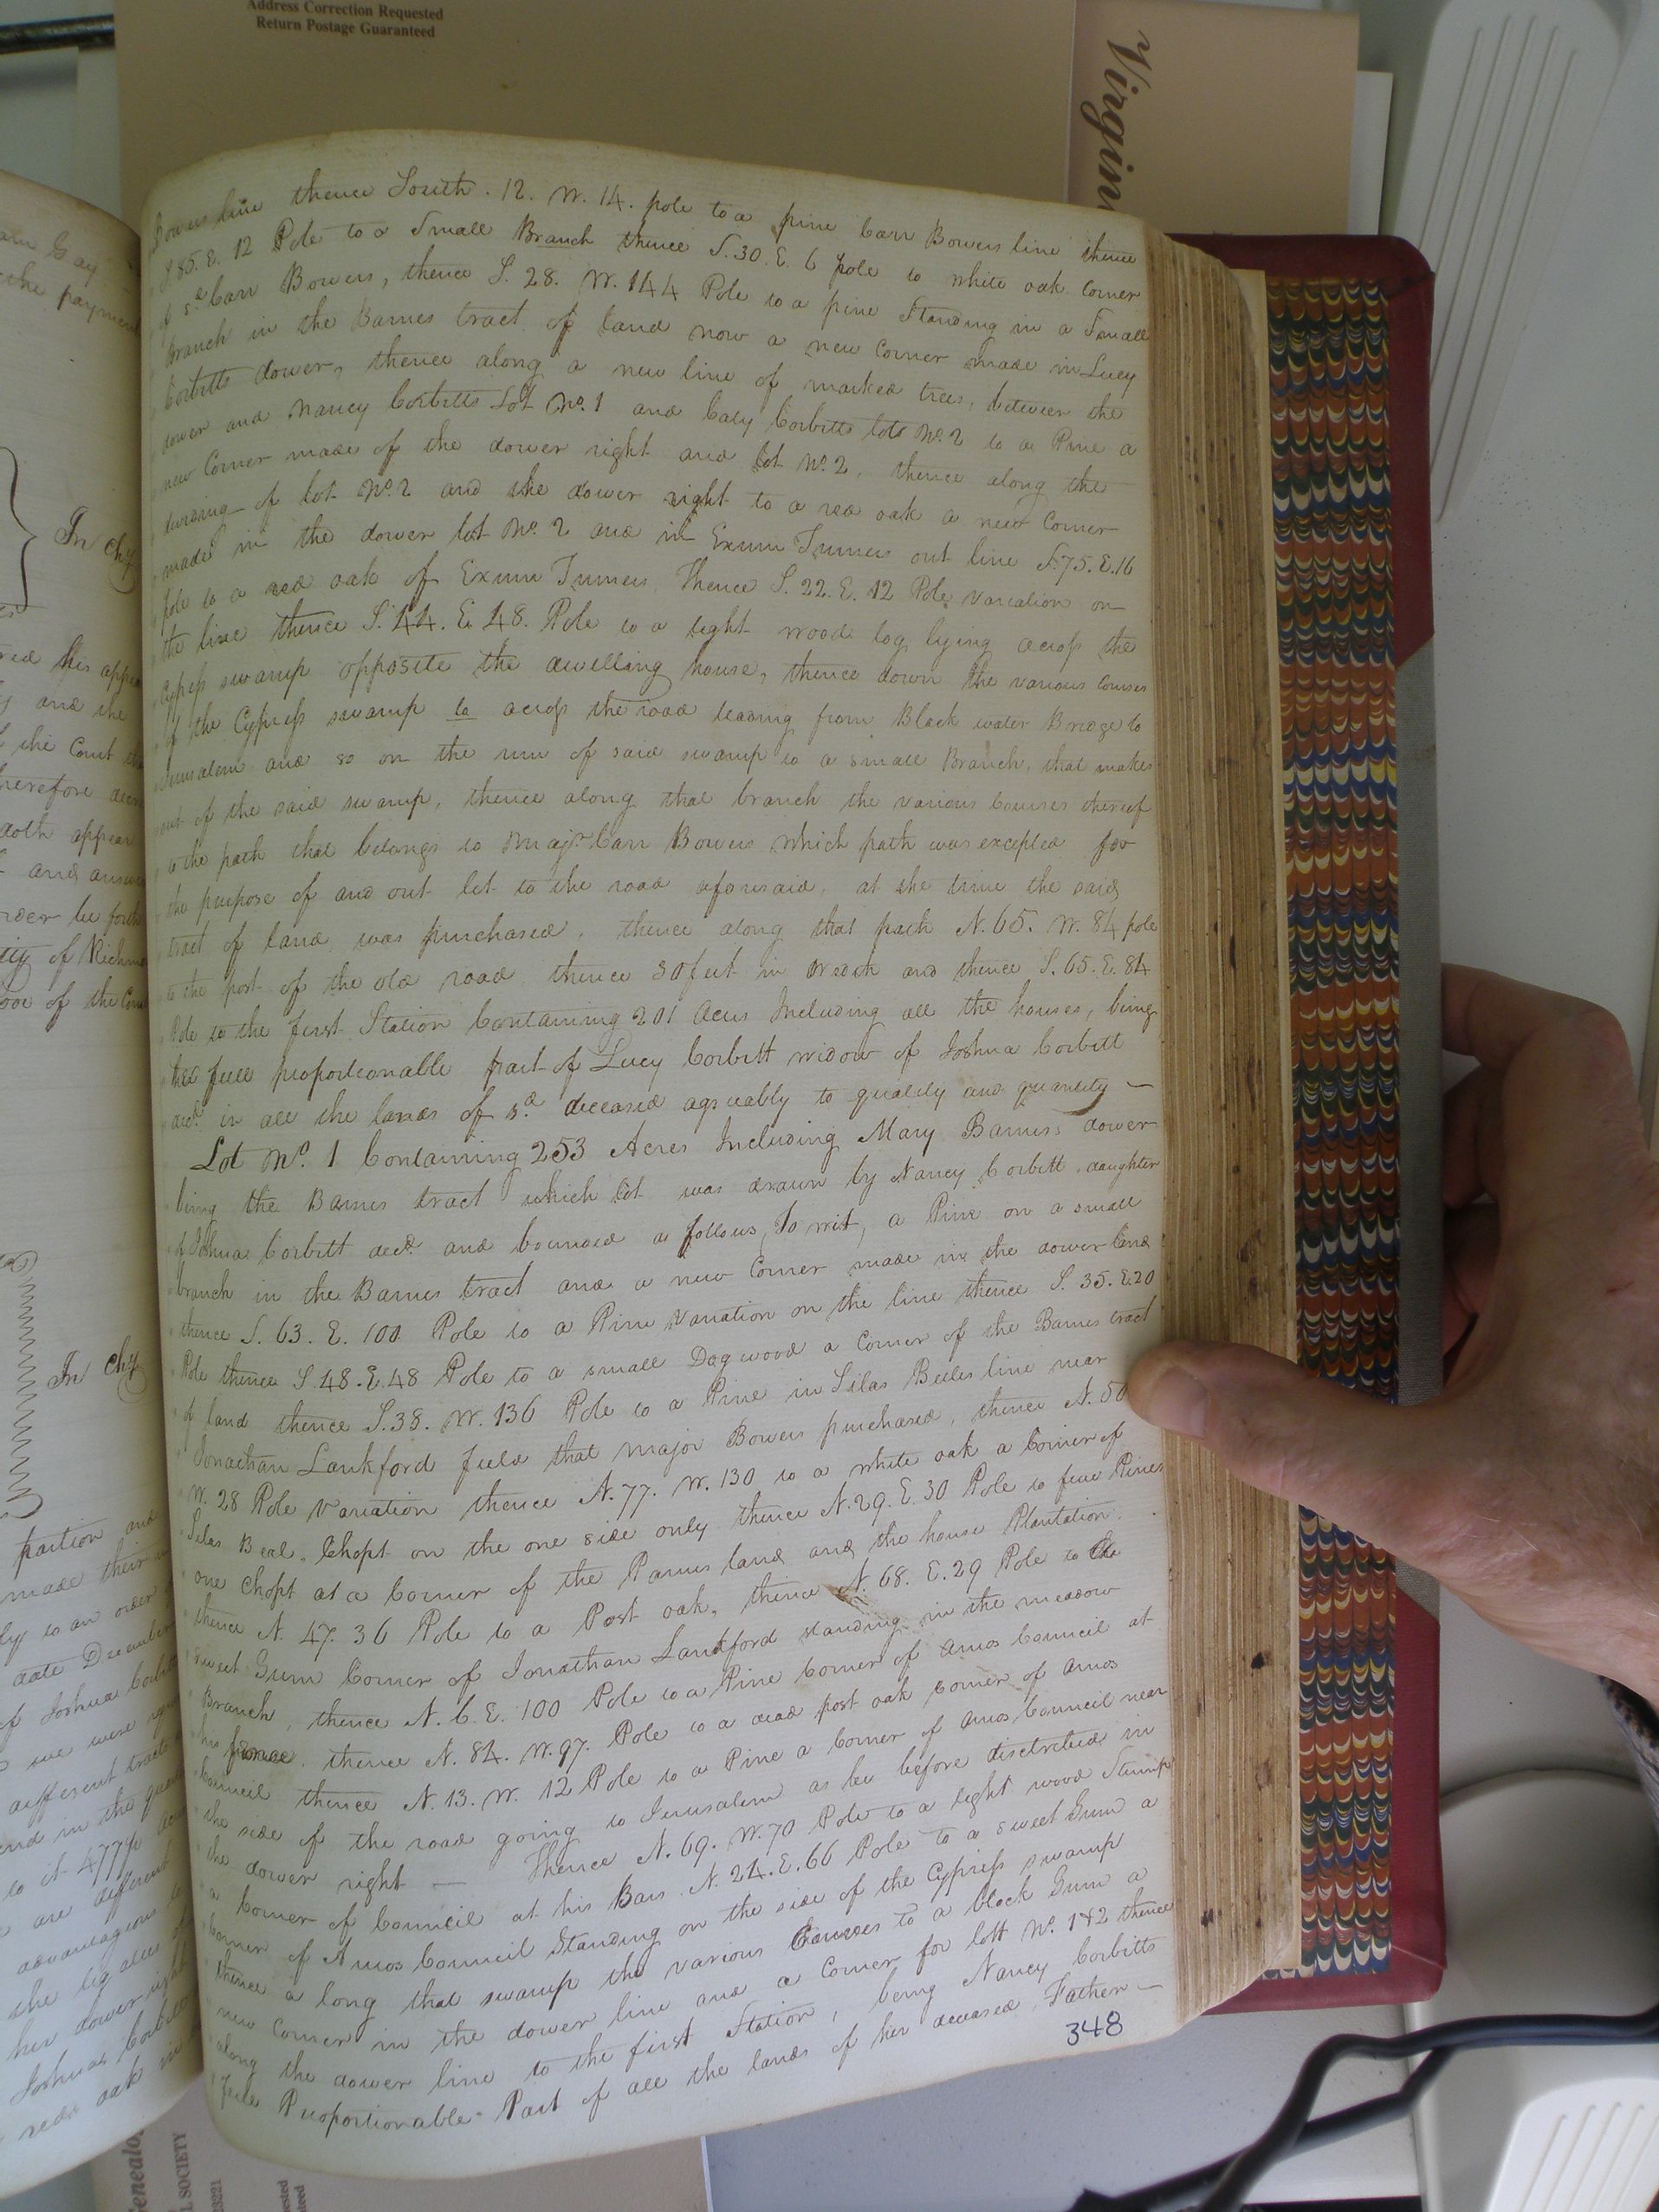 Address Correction Requested
Return Postage Guaranteed
Virgin
Bowers line thence South. 12. W. 14. pole to a pine Carr Bowers line thence
S 85. E. 12 Pole to a Small Branch thence S. 30. E. 6 pole to white oak Corner
of sd. Carr Bowers, thence S. 28. W. 144 Pole to a pine Standing in a Small
Branch in the Barnes tract of land now a new Corner made in Lucy
Corbitts dower, thence along a new line of marked trees, between the
dower and Nancy Corbitts Lot No. 1 and Caty Corbitts lots No. 2 to a Pine a
new Corner made of the dower right and lot No. 2, thence along the
of lot No. 2 and the dower right to a red oak a new Corner
made in the dower lot No. 2 and in Exum Turners out line S. 75. E. 16
pole to a red oak of Exum Turners Thence S. 22. E. 12 Pole variation on
the line thence S. 44. E. 48. Pole to a light wood log lying across the
Cypress swamp opposite the dwelling house, thence down the various Courses
of the Cypress swamp to across the road leading from Black water Bridge to
Jerusalem and so on the run of said swamp to a small Branch, that makes
out of the said swamp, thence along that branch the various Courses thereof
to the path that belongs to Majr. Carr Bowers which path was excepted for
the purpose of and out let to the road aforesaid, at the time the said
tract of land was purchased, thence along that path N. 65. W. 84 pole
to the post of the old road thence 30 feet in width and thence S. 65. E. 84
Pole to the first Station Containing 201 Acres Including all the houses, being
her full proportionable part of Lucy Corbitt widow of Joshua Corbitt
decd. in all the lands of sd. deceased agreeably to quality and quantity —
Lot No. 1 Containing 253 Acres Including Mary Barnes's dower
being the Barnes tract which lot was drawn by Nancy Corbitt daughter
of Joshua Corbitt decd. and bounded as follows, To wit, a Pine on a small
branch in the Barnes tract and a new Corner made in the dower land
thence S. 63. E. 100 Pole to a Pine Variation on the line thence S. 35. E. 20
Pole thence S. 48. E. 48 Pole to a small Dogwood a Corner of the Barnes tract
of land thence S. 38. W. 136 Pole to a Pine in Silas Beeles line near
Jonathan Lankford field that Major Bowers purchased, thence N. 50
W. 28 Pole Variation thence N. 77. W. 130 to a white oak a Corner of
Silas Beal, Chopt on the one side only thence N. 29. E. 30 Pole to four Pines
one Chopt at a Corner of the Barnes land and the house Plantation.
thence N. 47. 36 Pole to a Post oak, thence N. 68. E. 29 Pole to the
sweet Gum Corner of Jonathan Lankford standing in the meadow
Branch, thence N. 6. E. 100 Pole to a Pine Corner of Amos Council at
his fence, thence N. 84. W. 97. Pole to a dead post oak Corner of Amos
Council thence N. 13. W. 12 Pole to a Pine a Corner of Amos Council near
the side of the road going to Jerusalem as be before discribed in
the dower right — Thence N. 69. W. 70 Pole to a light wood Stump
a Corner of Council at his Bars N. 24. E. 66 Pole to a sweet Gum a
Corner of Amos Council Standing on the side of the Cypress swamp
thence a long that swamp the various Courses to a black Gum a
new Corner in the dower line and a Corner for lott No. 1 & 2 thence
along the dower line to the first Station, being Nancy Corbitts
full Proportionable Part of all the lands of her deceased Father —
348
In Chy
In Chy
the payment
and the
the Court
therefore
doth appear
of Richm
partion and
made their
to an order
date December
of Joshua
we were
different tracts
to it 477½
are different
advantageous
the legatees
her dower right
Joshua Corbitt
red oak in
L SOCIETY
23221